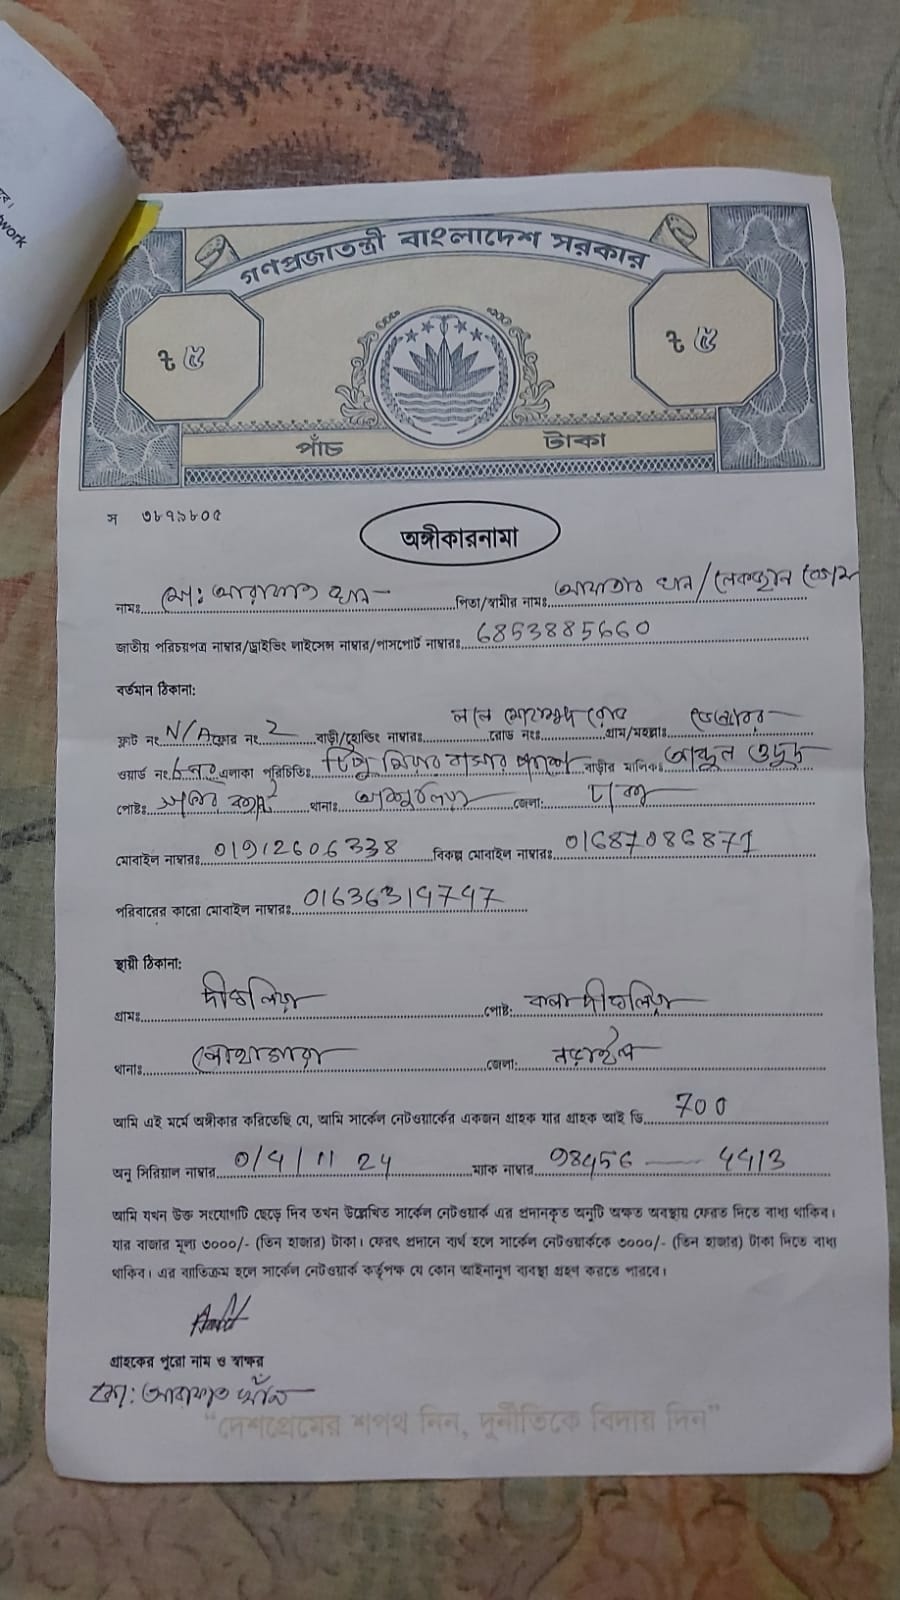 work
গণপ্রজাতন্ত্রী বাংলাদেশ সরকার
৳ ৫ ৳ ৫
পাঁচ টাকা
স ৩৮৭৯৮০৫
অঙ্গীকারনামা
নামঃ মোঃ আরাফাত খান পিতা/স্বামীর নামঃ খান /
জাতীয় পরিচয়পত্র নাম্বার/ড্রাইভিং লাইসেন্স নাম্বার/পাসপোর্ট নাম্বারঃ 6853885660
বর্তমান ঠিকানা:
ফ্লাট নং N/A ফ্লোর নং 2 বাড়ী/হোল্ডিং নাম্বারঃ রোড নংঃ গ্রাম/মহল্লাঃ
ওয়ার্ড নং এলাকা পরিচিতিঃ টিপু মিয়ার বাসার পাশে বাড়ীর মালিকঃ আব্দুল ওদুদ
পোষ্টঃ থানাঃ জেলা: ঢাকা
মোবাইল নাম্বারঃ 01912606338 বিকল্প মোবাইল নাম্বারঃ 01687086871
পরিবারের কারো মোবাইল নাম্বারঃ 01636314747
স্থায়ী ঠিকানা:
গ্রামঃ দীঘলিয়া পোষ্ট: দীঘলিয়া
থানাঃ লোহাগাড়া জেলা: নড়াইল
আমি এই মর্মে অঙ্গীকার করিতেছি যে, আমি সার্কেল নেটওয়ার্কের একজন গ্রাহক যার গ্রাহক আই ডি 700
অনু সিরিয়াল নাম্বার 0/4/11 24 ম্যাক নাম্বার 98456 — 4413
আমি যখন উক্ত সংযোগটি ছেড়ে দিব তখন উল্লেখিত সার্কেল নেটওয়ার্ক এর প্রদানকৃত অনুটি অক্ষত অবস্থায় ফেরত দিতে বাধ্য থাকিব।
যার বাজার মূল্য ৩০০০/- (তিন হাজার) টাকা। ফেরৎ প্রদানে ব্যর্থ হলে সার্কেল নেটওয়ার্ককে ৩০০০/- (তিন হাজার) টাকা দিতে বাধ্য
থাকিব। এর ব্যতিক্রম হলে সার্কেল নেটওয়ার্ক কর্তৃপক্ষ যে কোন আইনানুগ ব্যবস্থা গ্রহণ করতে পারবে।
গ্রাহকের পুরো নাম ও স্বাক্ষর
মো: আরাফাত খাঁন
“দেশপ্রেমের শপথ নিন, দুর্নীতিকে বিদায় দিন”